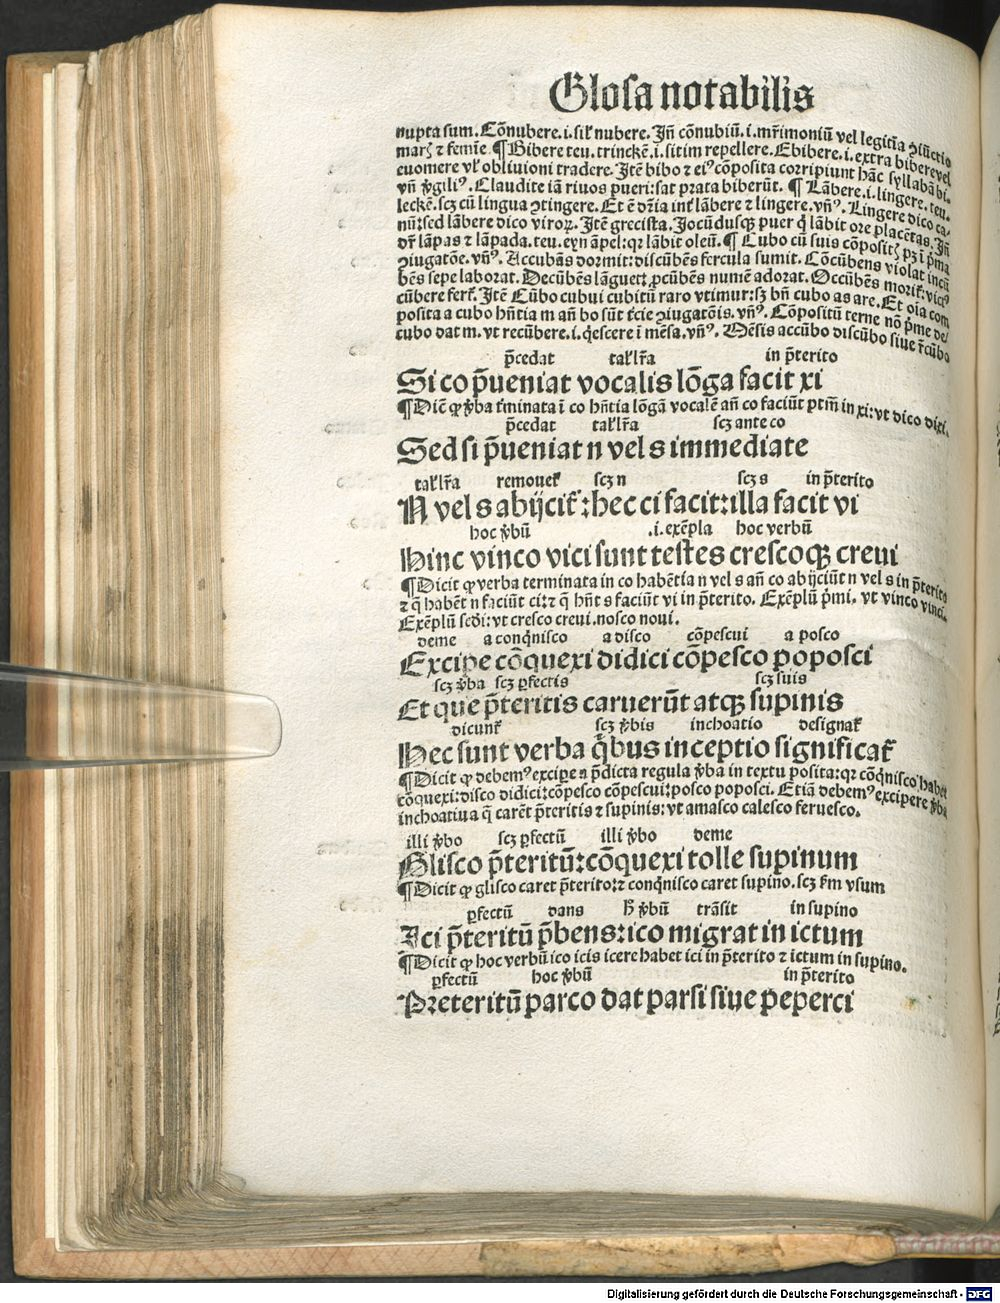 Glosa notabilis
nupta sum. Cōnubere .i. sil' nubere. Jn̄ cōnubiū .i. mr̄imoniū vel legitīa ꝯiūctio
marꝭ ⁊ femīe. ¶ Bibere teu. trinckē .i. sitim repellere. Ebibere .i. extra bibere vel
euomere vl' obliuioni tradere. Jtē bibo ⁊ eiꝰ cōposita corripiunt hāc syllabā bi.
vn̄ v̓giliꝰ. Claudite iā riuos pueri: sat prata biberūt. ¶ Lābere .i. lingere. teu.
leckē. scꝫ cū lingua ꝯtingere. Et ē dr̄ia int' lābere ⁊ lingere. vn̄ꝰ. Lingere dico ca-
nū: sed lābere dico viroꝝ. Jtē grecista. Jocūdusqꝫ puer q̇ lābit ore placētas. Jn̄
dr̄ lāpas ⁊ lāpada. teu. eyn āpel: qꝛ lābit oleū. ¶ Cubo cū suis cōpositꝭ pꝫ ī p̄ma
ꝯiugatōe. vn̄ꝰ. Accubās dormit: discubēs fercula sumit. Cōcūbens violat incū
bēs sepe laborat. Decūbēs lāguet: ꝓcūbēs numē adorat. Occūbēs morit': victꝰ
cūbere fert'. Jtē Cūbo cubui cubitū raro vtimur: sꝫ bn̄ cubo as are. Et oīa com
posita a cubo hn̄tia m an̄ bo sūt t'cie ꝯiugatōis. vn̄ꝰ. Cōpositū terne nō p̄me de/
cubo dat m. vt recūbere .i. q̇escere ī mēsa. vn̄ꝰ. Mēsis accūbo discūbo siue r̄cūbo
p̄cedat tal' lr̄a in p̄terito
Si co p̄ueniat vocalis lōga facit xi
¶ Dicit ꝙ v̓ba t'minata ī co hn̄tia lōgā vocalē an̄ co faciūt ptm̄ in xi: vt dico dixi.
p̄cedat tal' lr̄a scꝫ ante co
Sed si p̄ueniat n vel s immediate
tal' lr̄a remouet' scꝫ n scꝫ s in p̄terito
N vel s abijcit': hec ci facit: illa facit vi
hoc v̓bū .i. exēpla hoc verbū
Hinc vinco vici sunt testes crescoqꝫ creui
¶ Dicit ꝙ verba terminata in co habētia n vel s an̄ co abijciūt n vel s in p̄terito
⁊ q̄ habēt n faciūt ci: ⁊ q̄ hn̄t s faciūt vi in p̄terito. Exēplū p̄mi. vt vinco vinci.
Exēplū scd̄i: vt cresco creui. nosco noui.
deme a conq̇nisco a disco cōpescui a posco
Excipe cōquexi didici cōpesco poposci
scꝫ v̓ba scꝫ ꝑfectis scꝫ suis
Et que p̄teritis caruerūt atqꝫ supinis
dicunt' scꝫ v̓bis inchoatio designat'
Hec sunt verba q̇bus inceptio significat'
¶ Dicit ꝙ debemꝰ excipe a p̄dicta regula v̓ba in textu posita: qꝛ cōq̇nisco habet
cōquexi: disco didici: cōpesco cōpescui: posco poposci. Etiā debemꝰ excipere v̓ba
inchoatiua q̄ carēt p̄teritis ⁊ supinis: vt amasco calesco feruesco.
illi v̓bo scꝫ ꝑfectū illi v̓bo deme
Glisco p̄teritū: cōquexi tolle supinum
¶ Dicit ꝙ glisco caret p̄terito: ⁊ conq̇nisco caret supino. scꝫ fm vsum
ꝑfectū dans h̄ v̓bū trāsit in supino
Ici p̄teritū p̄bens: ico migrat in ictum
¶ Dicit ꝙ hoc verbū ico icis icere habet ici in p̄terito ⁊ ictum in supino.
ꝑfectū hoc v̓bū in p̄terito
Preteritū parco dat parsi siue peperci
Digitalisierung gefördert durch die Deutsche Forschungsgemeinschaft - DFG